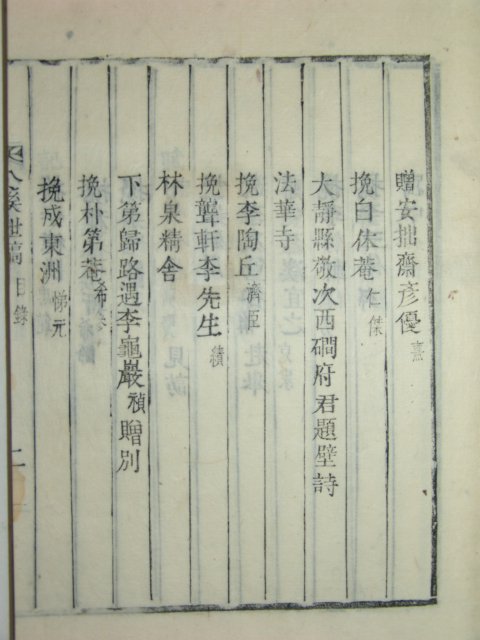 贈安拙齋彥優 憙
挽白休菴 仁傑
大靜縣敬次西磵府君題壁詩
法華寺
挽李陶丘 濟臣
挽聾軒李先生 績
林泉精舍
下第歸路遇李龜巖 禎 贈別
挽朴第菴
挽成東洲 悌元
八溪世稿 目錄 二